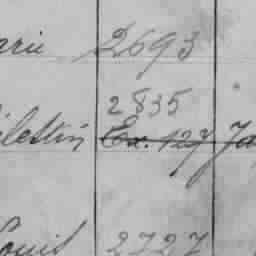 arie 2693
2835
élestin Ex. 127 Ja
Louis 2727